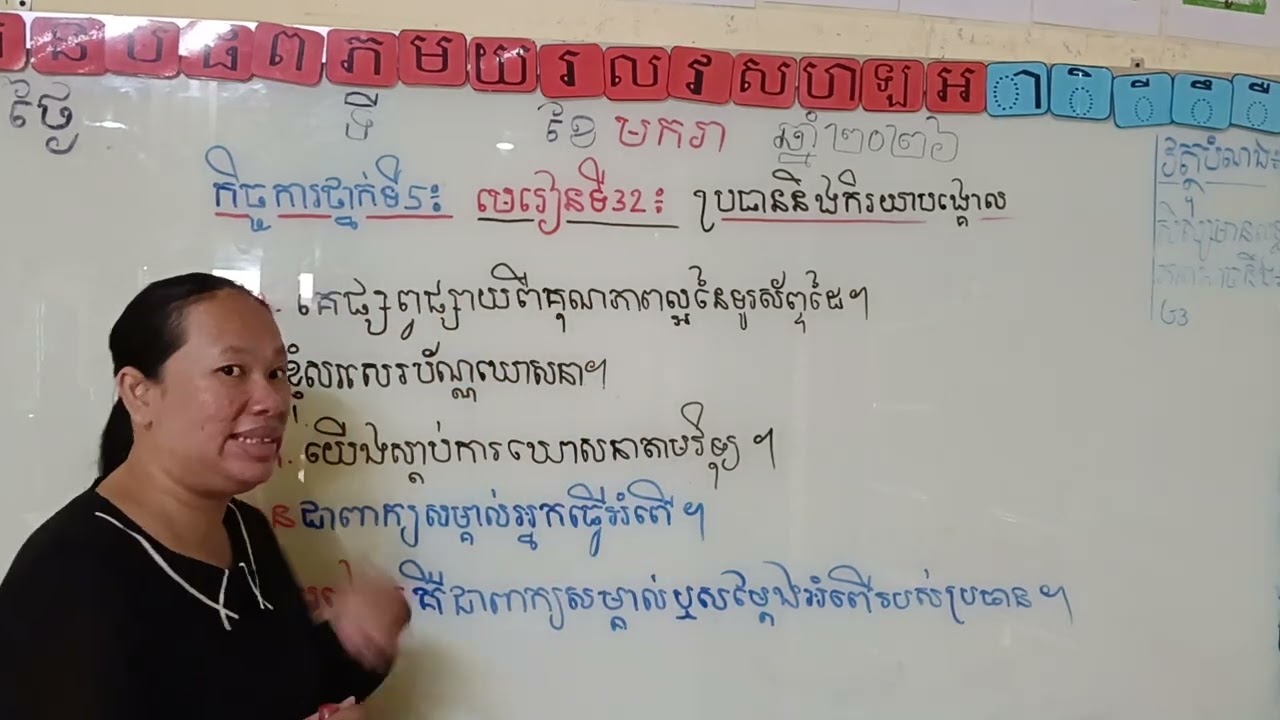 ប ផ ព ភ ម យ រ ល វ ស ហ ឡ អ ា ិ ី ឹ ឺ
ថ្ងៃ ទី ខែ មករា ឆ្នាំ ២០២៦
កិច្ចការថ្នាក់ទី5៖ មេរៀនទី32៖ ប្រធាននិងកិរយាបង្គោល
គេផ្សព្វផ្សាយពីគុណភាពល្អនៃទូរស័ព្ទដៃ។
ខ្ញុំសរសេរប័ណ្ណឃោសនា។
យើងស្តាប់ការឃោសនាតាមវិទ្យុ ។
ន ជាពាក្យសម្គាល់អ្នកធ្វើអំពើ ។
គឺជាពាក្យសម្គាល់ឬសម្តែងអំពើរបស់ប្រធាន ។
វត្តបំណង៖